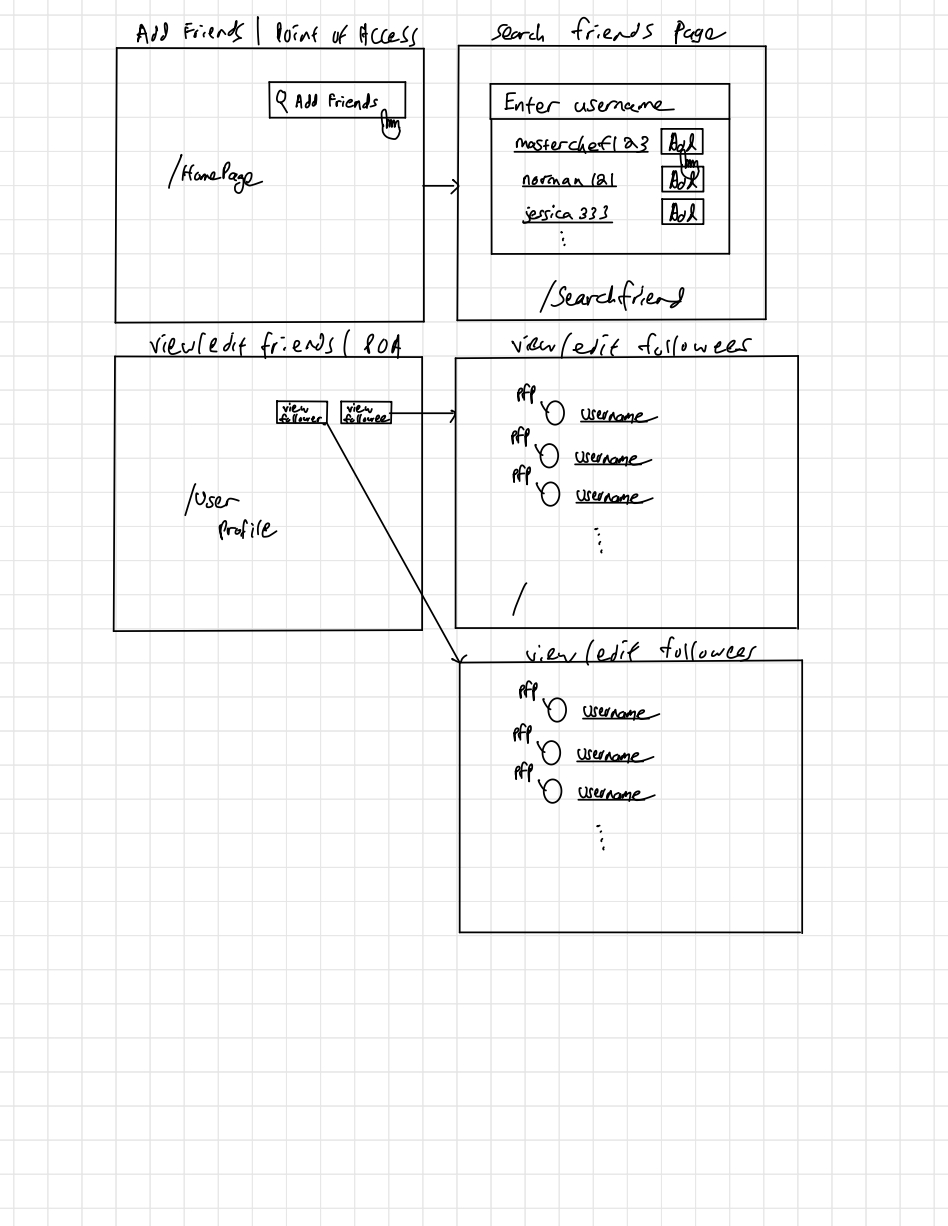 Add Friends | Point of Access
Add Friends
/HomePage
Search friends Page
Enter username
masterchef123 Add
norman121 Add
jessica333 Add
/Searchfriend
view/edit friends | POA
view follower
view followee
/User
Profile
view/edit followees
pfp username
pfp username
pfp username
/
view/edit followees
pfp username
pfp username
pfp username